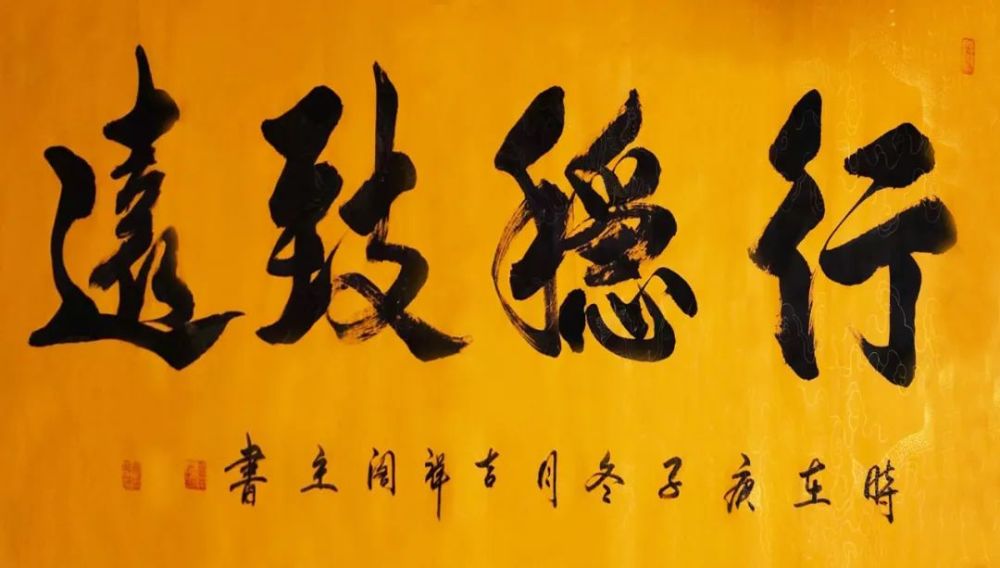 行穩致遠
時在庚子冬月吉祥閣主書